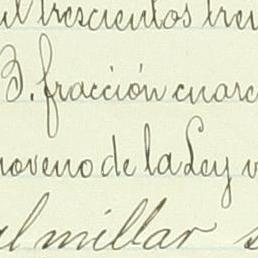 il trescientos trei
B. fracción cuarc
noveno de la Ley v
al millar s